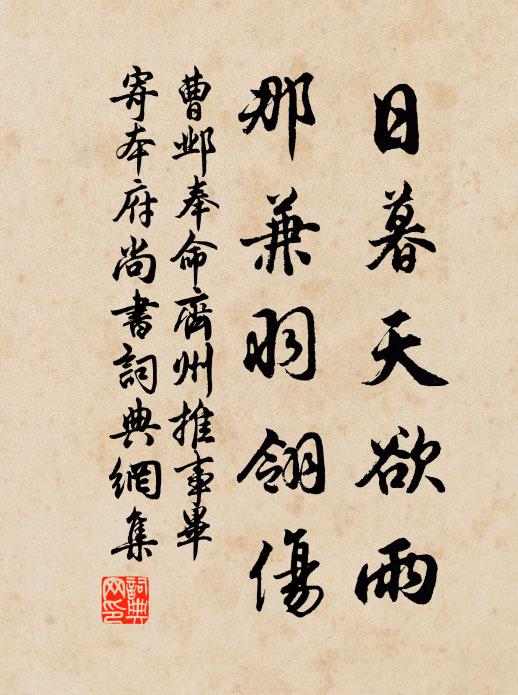 日暮天欲雨
那兼羽翎傷
曹鄴奉命齊州推事畢
寄本府尚書詞典網集
詞典网印